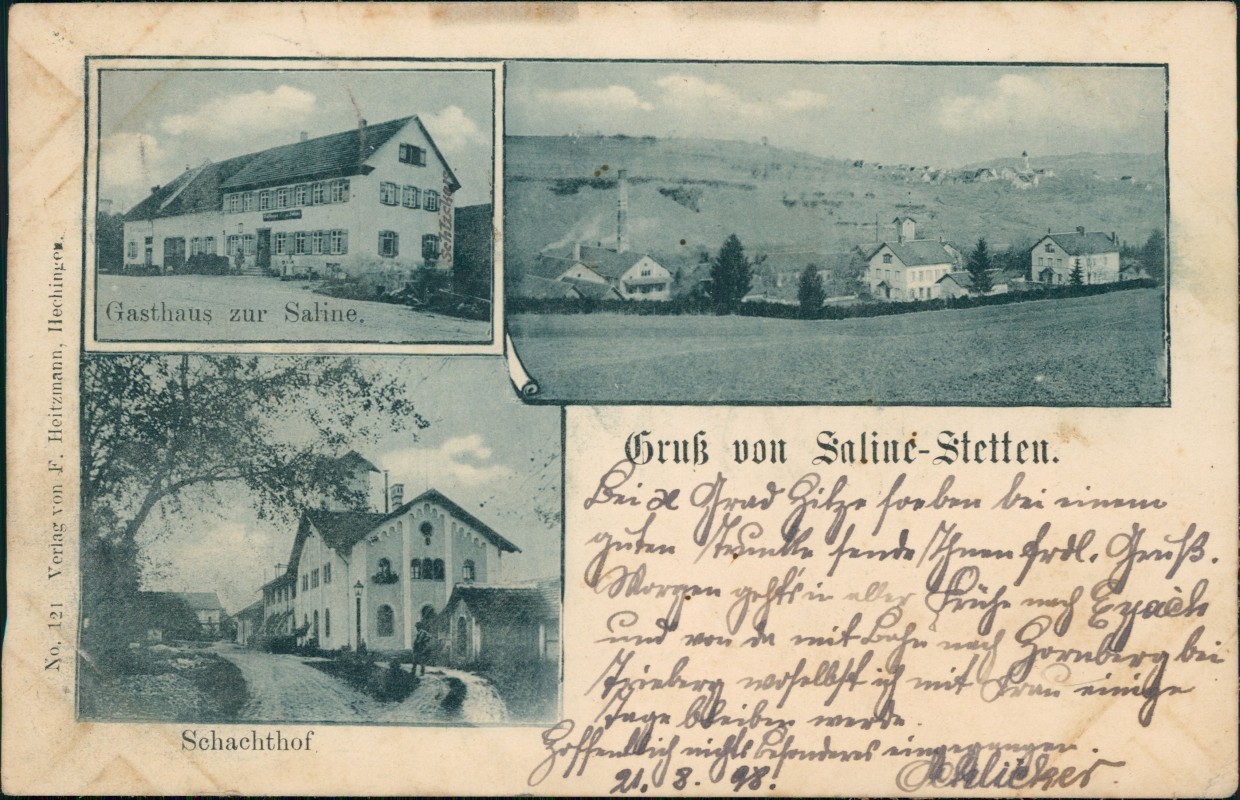 Gasthaus zur Saline.
No. 121 Verlag von F. Heitzmann, Hechingen.
Schachthof
Gruß von Saline-Stetten.
Bei x Grad Hitze soeben bei einem
guten Trunke sende Ihnen frdl. Gruß.
Morgen geht's in aller Frühe nach Eyach
und von da mit Bahn nach Hornberg bei
Trieberg woselbst ich mit Frau einige
Tage bleiben werde.
Hoffentlich nichts besonderes eingegangen.
21. 8. 98.